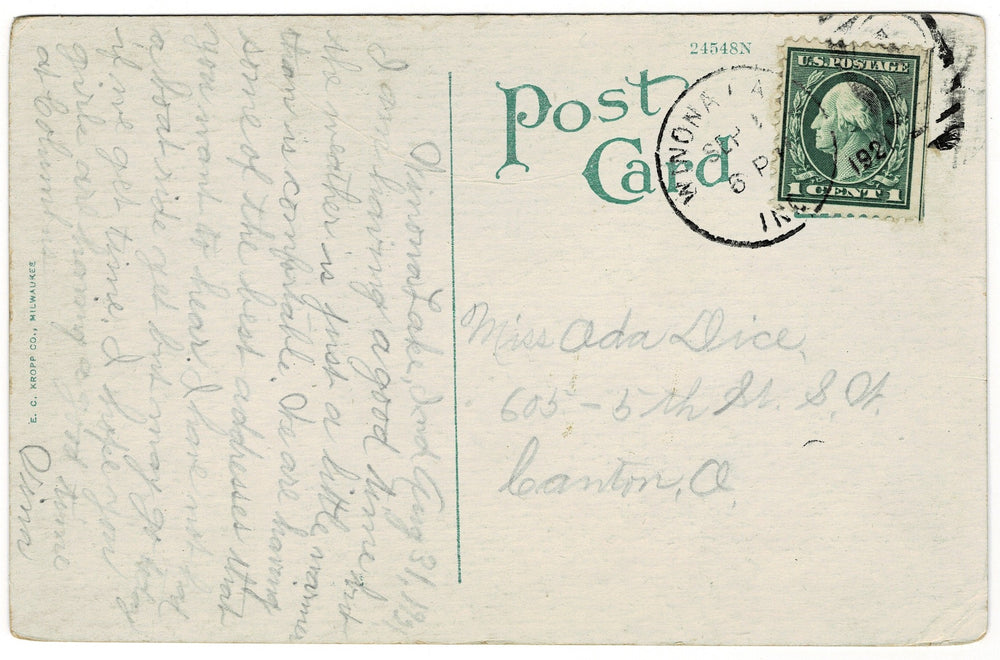 24548N
Post
Card
U.S. POSTAGE
1 CENT 1
WINONA LA
SEP 1
6 P
192
IND
Miss Ada Dice,
605 - 5th St. S. W.
Canton, O.
E. C. KROPP CO., MILWAUKEE
Winona Lake, Ind Aug 31, 192
I am having a good time, but
the weather is just a little warmer
than is comfortable. We are having
some of the best addresses that
you want to hear. I have not had
a boat ride yet but may go today
if we get time. I hope you
girls are having a good time
at Columbus.